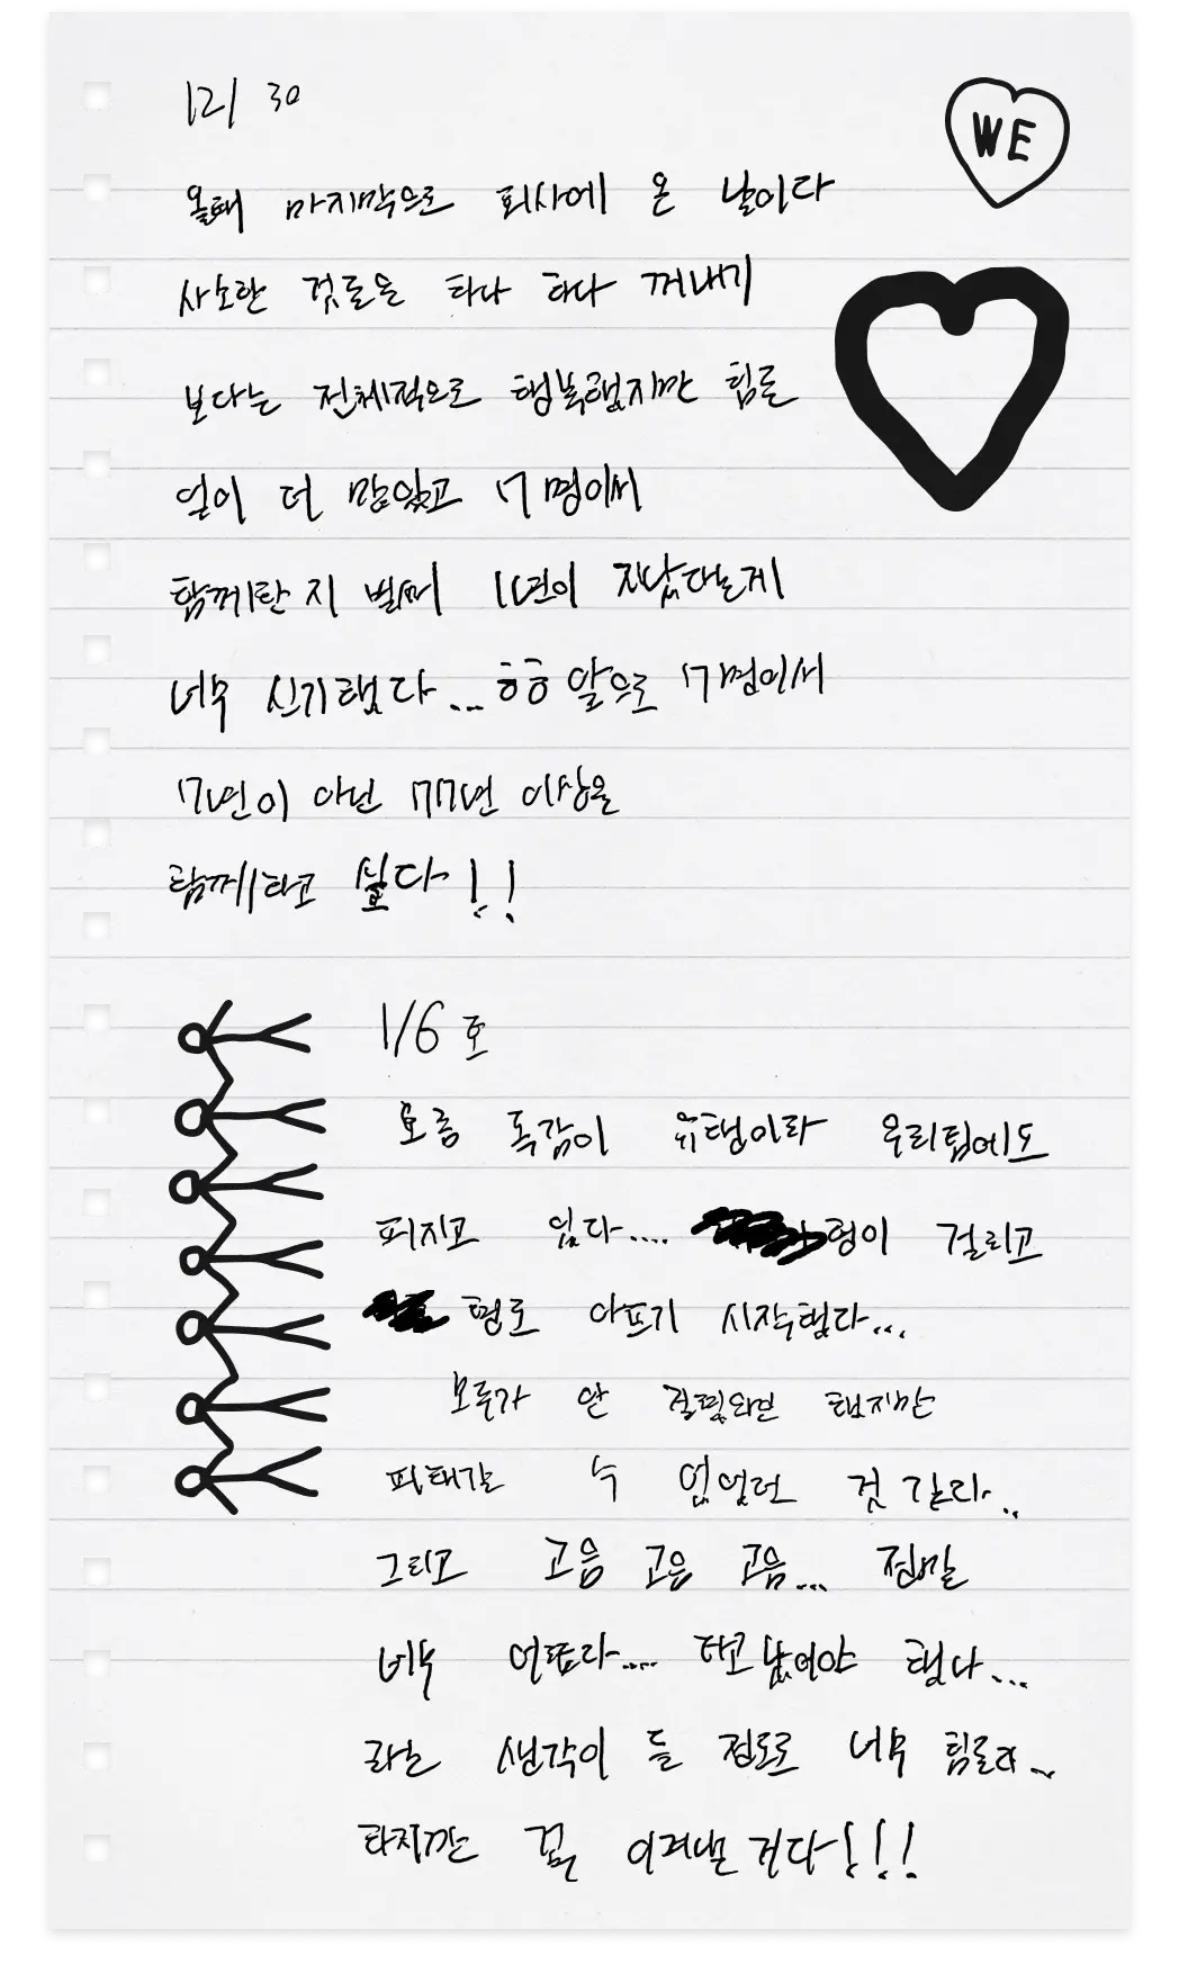 12/ 30
WE
올해 마지막으로 회사에 온 날이다
사소한 것들을 하나 하나 꺼내기
보다는 전체적으로 행복했지만 힘든
일이 더 많았고 7명이서
함께한 지 벌써 1년이 지났다는게
너무 신기했다... ㅎㅎ 앞으로 7명이서
7년이 아닌 77년 이상을
함께하고 싶다!!
1/6 호
요즘 독감이 유행이라 우리팀에도
퍼지고 있다.... 형이 걸리고
형도 아프기 시작했다...
모두가 안 걸릴와만 했지만
피해갈 수 없었던 것 같다..
그리고 고음 고음 고음... 정말
너무 어렵다.... 타고 났어야 했나...
라는 생각이 들 정도로 너무 힘들다..
하지만 꼭 이겨낼 거다!!!